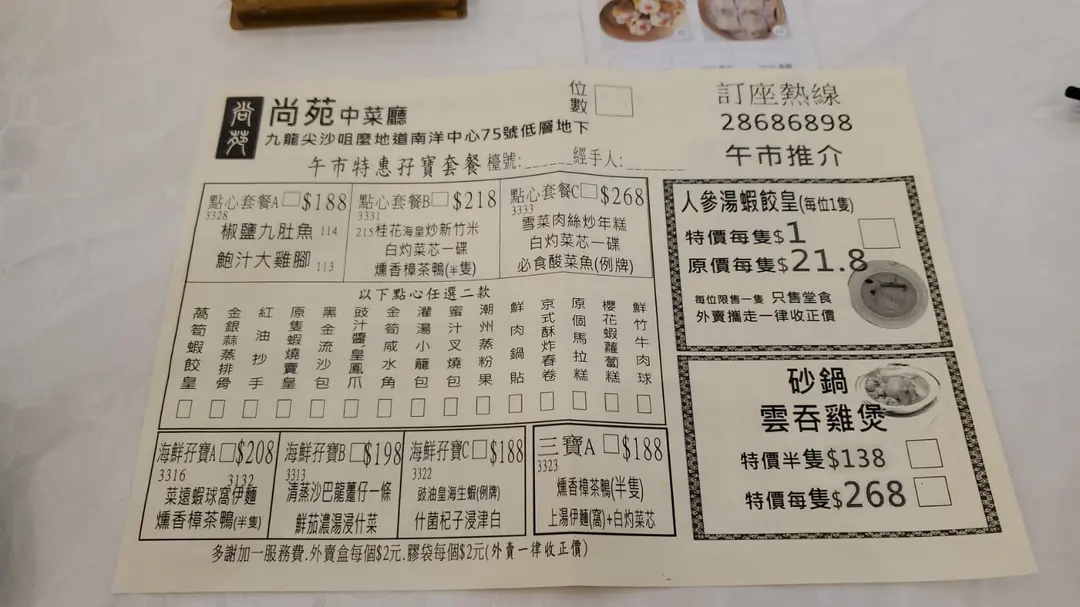 尚苑
尚苑中菜廳
九龍尖沙咀麼地道南洋中心75號低層地下
位數
訂座熱線
28686898
午市推介
午市特惠孖寶套餐 檯號:______經手人:______
點心套餐A $188
3328
椒鹽九肚魚 114
鮑汁大雞腳 113
點心套餐B $218
3331
215桂花海皇炒新竹米
白灼菜芯一碟
燻香樟茶鴨(半隻)
點心套餐C $268
3333
雪菜肉絲炒年糕
白灼菜芯一碟
必食酸菜魚(例牌)
以下點心任選二款
萬筍蝦餃皇
金銀蒜蒸排骨
紅油抄手
原隻蝦燒賣皇
黑金流沙包
豉汁醬皇鳳爪
金筍咸水角
灌湯小籠包
蜜汁叉燒包
潮州蒸粉果
鮮肉鍋貼
京式酥炸春卷
原個馬拉糕
櫻花蝦蘿蔔糕
鮮竹牛肉球
海鮮孖寶A $208
3316 3132
菜遠蝦球窩伊麵
燻香樟茶鴨(半隻)
海鮮孖寶B $198
3313
清蒸沙巴龍躉仔一條
鮮茄濃湯浸什菜
海鮮孖寶C $188
3322
豉油皇海生蝦(例牌)
什菌杞子浸津白
三寶A $188
3323
燻香樟茶鴨(半隻)
上湯伊麵(窩)+白灼菜芯
多謝加一服務費.外賣盒每個$2元.膠袋每個$2元(外賣一律收正價)
人參湯蝦餃皇(每位1隻)
特價每隻$1
原價每隻$21.8
每位限售一隻 只售堂食
外賣攜走一律收正價
砂鍋
雲吞雞煲
特價半隻$138
特價每隻$268